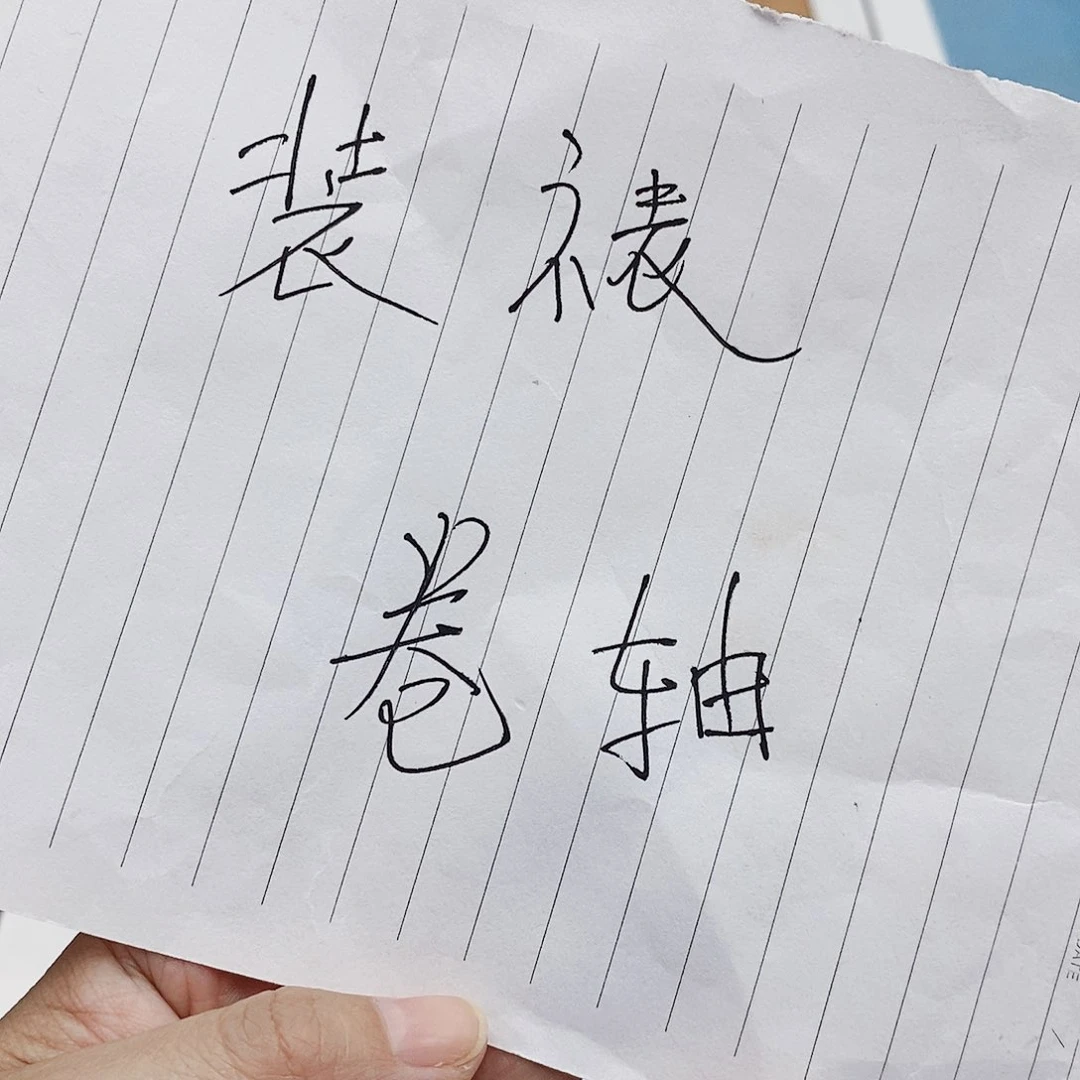 装裱
卷轴
DATE /